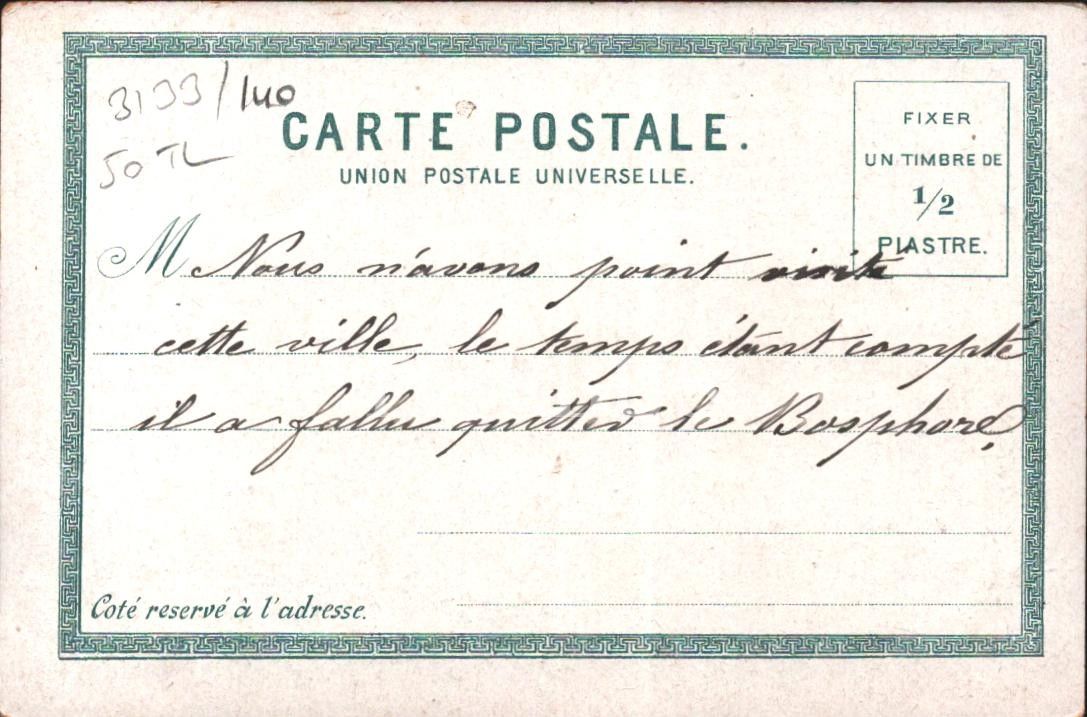 3133/140
50 TL
CARTE POSTALE.
UNION POSTALE UNIVERSELLE.
FIXER
UN TIMBRE DE
1/2
PIASTRE.
M Nous n'avons point visité
cette ville, le temps étant compté
il a fallu quitter le Bosphore.
Coté reservé à l'adresse.